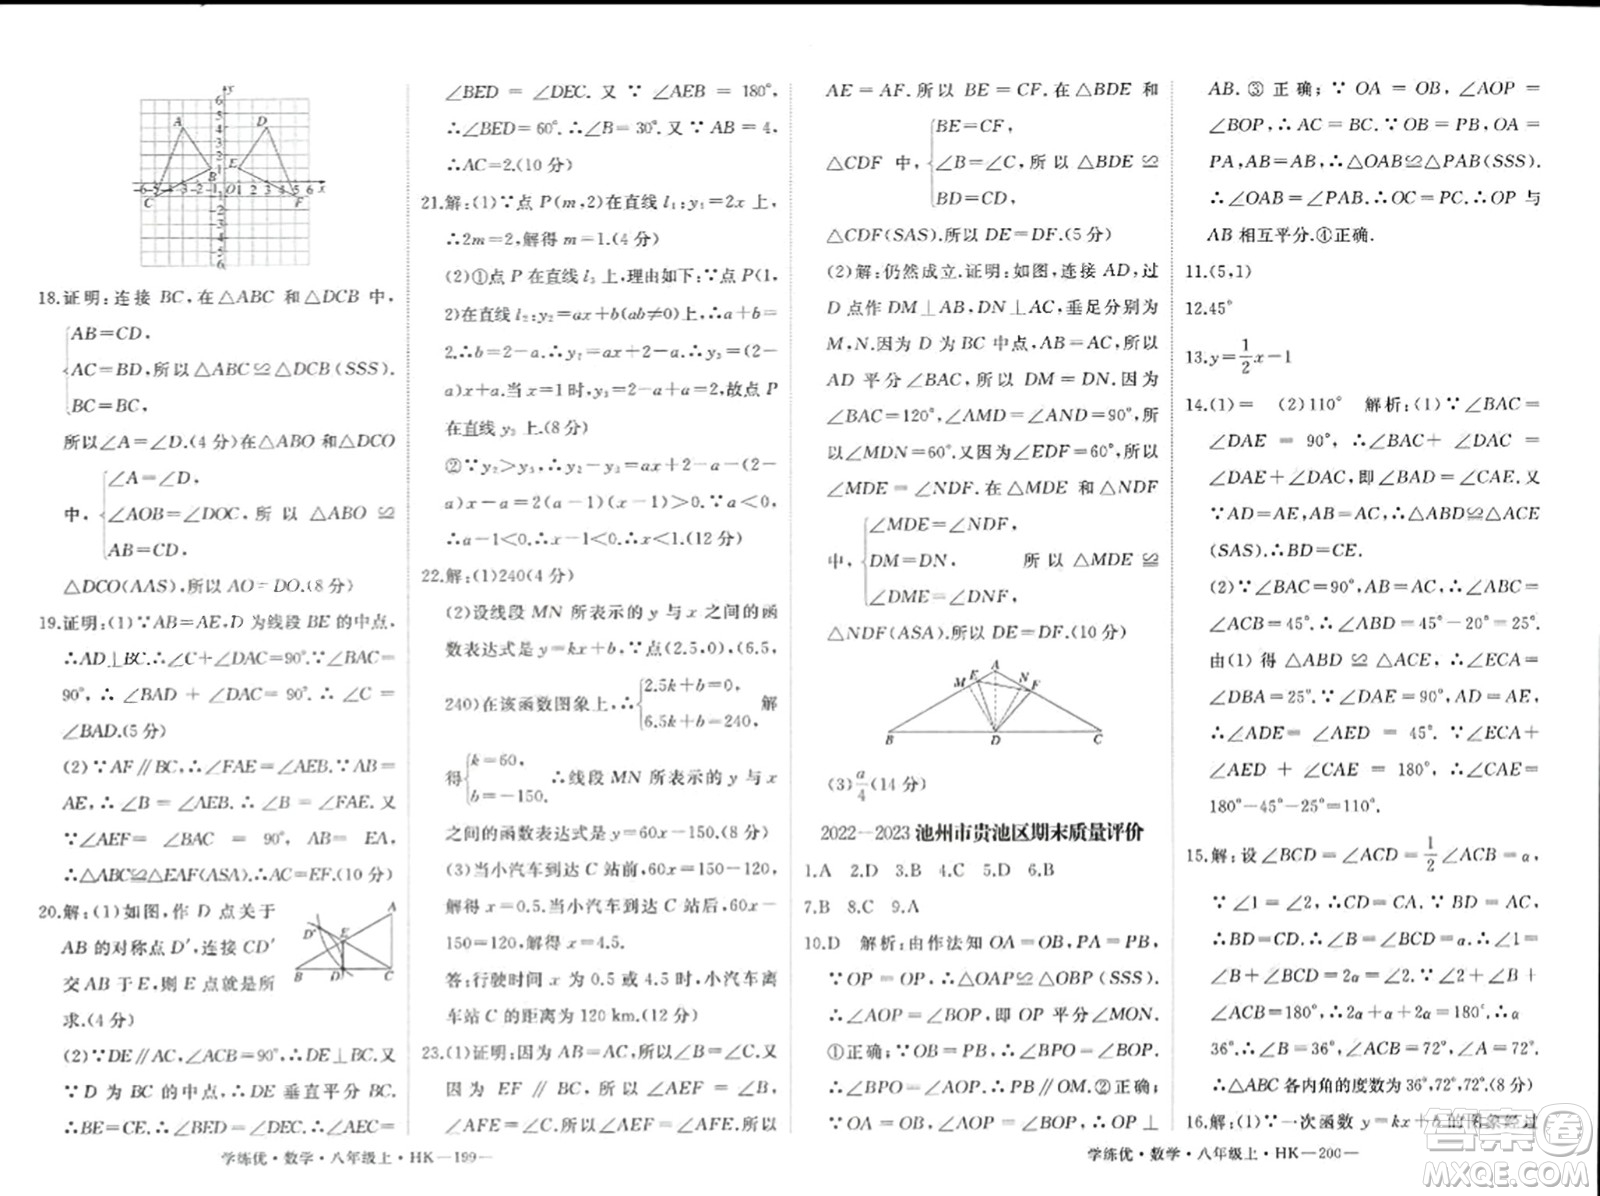 18.证明:连接 BC,在△ABC 和△DCB 中,
AB=CD,
AC=BD,所以△ABC≌△DCB(SSS).
BC=BC,
所以∠A=∠D.(4 分)在△ABO 和△DCO
∠A=∠D,
中,∠AOB=∠DOC,所以 △ABO ≌
AB=CD,
△DCO(AAS),所以 AO=DO.(8 分)
19.证明:(1)∵AB=AE,D 为线段 BE 的中点,
∴AD⊥BC.∴∠C+∠DAC=90°.∵∠BAC=
90°,∴∠BAD + ∠DAC = 90°.∴∠C =
∠BAD.(5 分)
(2)∵AF∥BC,∴∠FAE=∠AEB.∵AB=
AE,∴∠B=∠AEB.∴∠B=∠FAE.又
∵∠AEF=∠BAC = 90°,AB= EA,
∴△ABC≌△EAF(ASA).∴AC=EF.(10 分)
20.解:(1)如图,作 D 点关于
AB 的对称点 D′,连接 CD′
交 AB 于 E,则 E 点就是所
求.(4 分)
(2)∵DE∥AC,∠ACB=90°,∴DE⊥BC.又
∵D 为 BC 的中点,∴DE 垂直平分 BC.
∴BE=CE.∴∠BED=∠DEC,∴∠AEC=
∠BED = ∠DEC. 又 ∵ ∠AEB = 180°,
∴∠BED=60°.∴∠B=30°.又∵AB=4,
∴AC=2.(10 分)
21.解:(1)∵点 P(m,2)在直线 l₁:y₁=2x 上,
∴2m=2,解得 m=1.(4 分)
(2)①点 P 在直线 l₃ 上,理由如下:∵点 P(1,
2)在直线 l₂:y₂=ax+b(ab≠0)上,∴a+b=
2.∴b=2-a.∴y₂=ax+2-a.∴y₃=(2-
a)x+a.当 x=1 时,y₃=2-a+a=2,故点 P
在直线 y₃ 上.(8 分)
②∵y₂>y₃,∴ax+2-a-(2-
a)x-a=2(a-1)(x-1)>0.∵a<0,
∴a-1<0.∴x-1<0.∴x<1.(12 分)
22.解:(1)240(4 分)
(2)设线段 MN 所表示的 y 与 x 之间的函
数表达式是 y=kx+b,∵点(2.5,0),(6.5,
240)在该函数图象上,∴ 2.5k+b=0, 解
6.5k+b=240,
得 k=60, ∴线段 MN 所表示的 y 与 x
b=-150.
之间的函数表达式是 y=60x-150.(8 分)
(3)当小汽车到达 C 站前,60x=150-120,
解得 x=0.5.当小汽车到达 C 站后,60x-
150=120,解得 x=4.5.
答:行驶时间 x 为 0.5 或 4.5 时,小汽车离
车站 C 的距离为 120 km.(12 分)
23.(1)证明:因为 AB=AC,所以∠B=∠C.又
因为 EF ∥ BC,所以 ∠AEF = ∠B,
∠AFE=∠C.所以∠AEF=∠AFE.所以
学练优·数学·八年级上·HK—199—
AE=AF.所以 BE=CF.在△BDE 和
BE=CF,
△CDF 中,∠B=∠C,所以 △BDE ≌
BD=CD,
△CDF(SAS).所以 DE=DF.(5 分)
(2)解:仍然成立.证明:如图,连接 AD,过
D 点作 DM⊥AB,DN⊥AC,垂足分别为
M,N.因为 D 为 BC 中点,AB=AC,所以
AD 平分∠BAC,所以 DM=DN.因为
∠BAC=120°,∠AMD=∠AND=90°,所
以∠MDN=60°.因为∠EDF=60°,所以
∠MDE=∠NDF.在△MDE 和△NDF
∠MDE=∠NDF,
中,DM=DN, 所以 △MDE ≌
∠DME=∠DNF,
△NDF(ASA).所以 DE=DF.(10 分)
(3)a/4(14 分)
2022—2023 池州市贵池区期末质量评价
1.A 2.D 3.B 4.C 5.D 6.B
7.B 8.C 9.A
10.D 解析:由作法知 OA=OB,PA=PB,
∵OP=OP,∴△OAP≌△OBP(SSS).
∴∠AOP=∠BOP,即 OP 平分∠MON.
①正确;∵OB=PB,∴∠BPO=∠BOP.
∴∠BPO=∠AOP.∴PB∥OM.②正确;
∵OA = OB,∠AOP = ∠BOP,∴OP ⊥
AB.③正确;∵OA=OB,∠AOP=
∠BOP,∴AC=BC.∵OB=PB,OA=
PA,AB=AB,∴△OAB≌△PAB(SSS).
∴∠OAB=∠PAB.∴OC=PC.∴OP 与
AB 相互平分.④正确.
11.(5,1)
12.45°
13.y=1/2x-1
14.(1)= (2)110° 解析:(1)∵∠BAC=
∠DAE = 90°,∴∠BAC+ ∠DAC =
∠DAE+∠DAC,即∠BAD=∠CAE.又
∵AD=AE,AB=AC,∴△ABD≌△ACE
(SAS).∴BD=CE.
(2)∵∠BAC=90°,AB=AC,∴∠ABC=
∠ACB=45°.∴∠DBA=45°-20°=25°.
由(1)得△ABD≌△ACE,∴∠ECA=
∠DBA=25°.∵∠DAE=90°,AD=AE,
∴∠ADE=∠AED = 45°.∵∠ECA+
∠AED + ∠CAE = 180°,∴∠CAE =
180°-45°-25°=110°.
15.解:设∠BCD=∠ACD=1/2∠ACB=α,
∵∠1=∠2,∴∠CDB=∠CBD.
∴BD=CD.∴∠B=∠BCD=α.∴∠1=
∠B+∠BCD=2α=∠2.∵∠2+∠A+
∠ACB=180°,∴2α+α+2α=180°,∴α=
36°.∴∠B=36°,∠ACB=72°,∠A=72°.
∴△ABC 各内角的度数为 36°,72°,72°.(8 分)
16.解:(1)∵一次函数 y=kx+b 的图象经过
学练优·数学·八年级上·HK—200—
答案圈
MXQE.COM